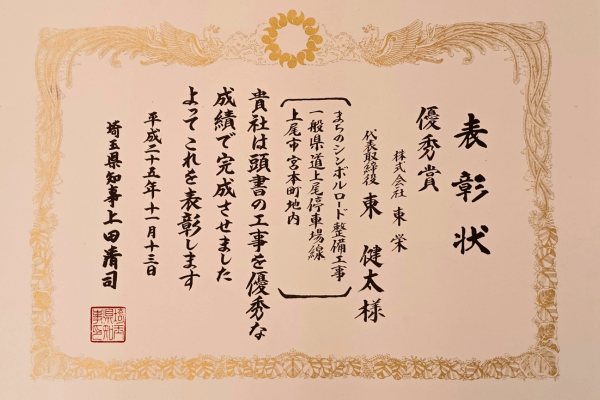 表彰状
優秀賞
株式会社 東栄
代表取締役 東 健太様
まちのシンボルロード整備工事
一般県道上尾停車場線
上尾市宮本町地内
貴社は頭書の工事を優秀な
成績で完成させました
よってこれを表彰します
平成二十五年十一月十三日
埼玉県知事上田清司
埼玉
県知
事印